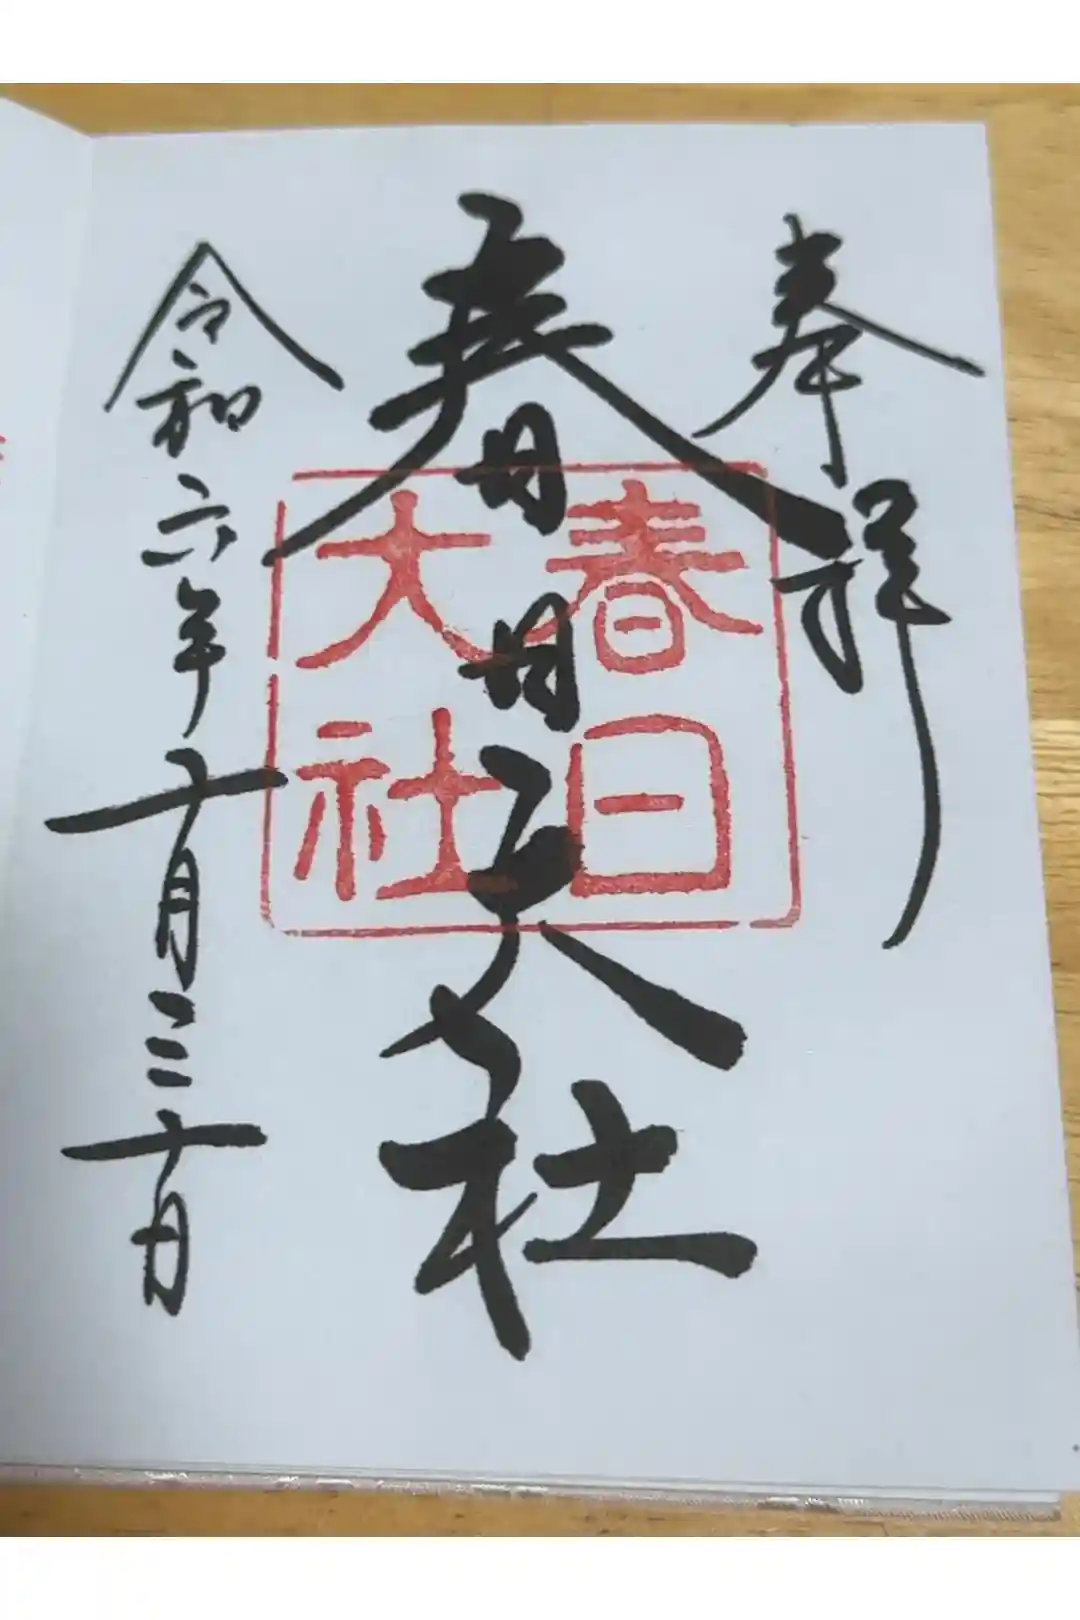 奉拝
春日大社
春日
大社
令和六年十月三十日